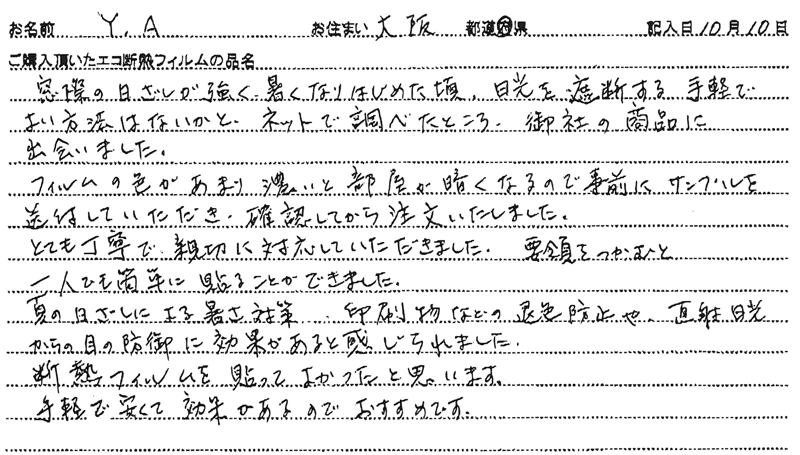 お名前 Y.A お住まい 大阪 都道府県 記入日10月10日
ご購入頂いたエコ断熱フィルムの品名
窓際の日ざしが強く、暑くなりはじめた頃、日光を遮断する手軽で
よい方法はないかと、ネットで調べたところ、御社の商品に
出会いました。
フィルムの色があまり濃いと部屋が暗くなるので事前にサンプルを
送付していただき、確認してから注文いたしました。
とても丁寧で、親切に対応していただきました。要領をつかむと
一人でも簡単に貼ることができました。
夏の日ざしによる暑さ対策、印刷物などの退色防止や、直射日光
からの目の防御に効果があると感じられました。
断熱フィルムを貼ってよかったと思います。
手軽で安くて効果があるのでおすすめです。